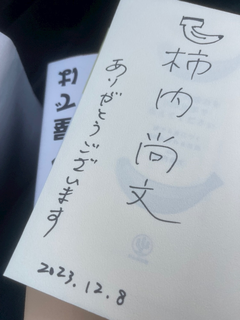 柿内尚文
ありがとうございます
2023.12.8